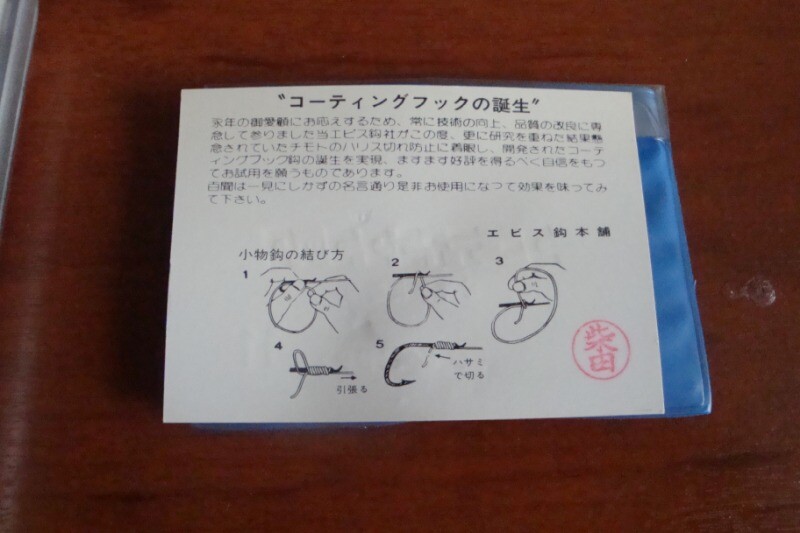 〝コーティングフックの誕生〟
永年の御愛顧にお応えするため、常に技術の向上、品質の改良に専
念して参りました当エビス鈎社がこの度、更に研究を重ねた結果懸
念されていたチモトのハリス切れ防止に着眼し、開発されたコーテ
ィングフック鈎の誕生を実現、ますます好評を得るべく自信をもつ
てお試用を願うものであります。
百聞は一見にしかずの名言通り是非お使用になつて効果を味ってみ
て下さい。
エビス鈎本舗
小物鈎の結び方
1
2
3
4
引張る
5
ハサミ
で切る
柴田